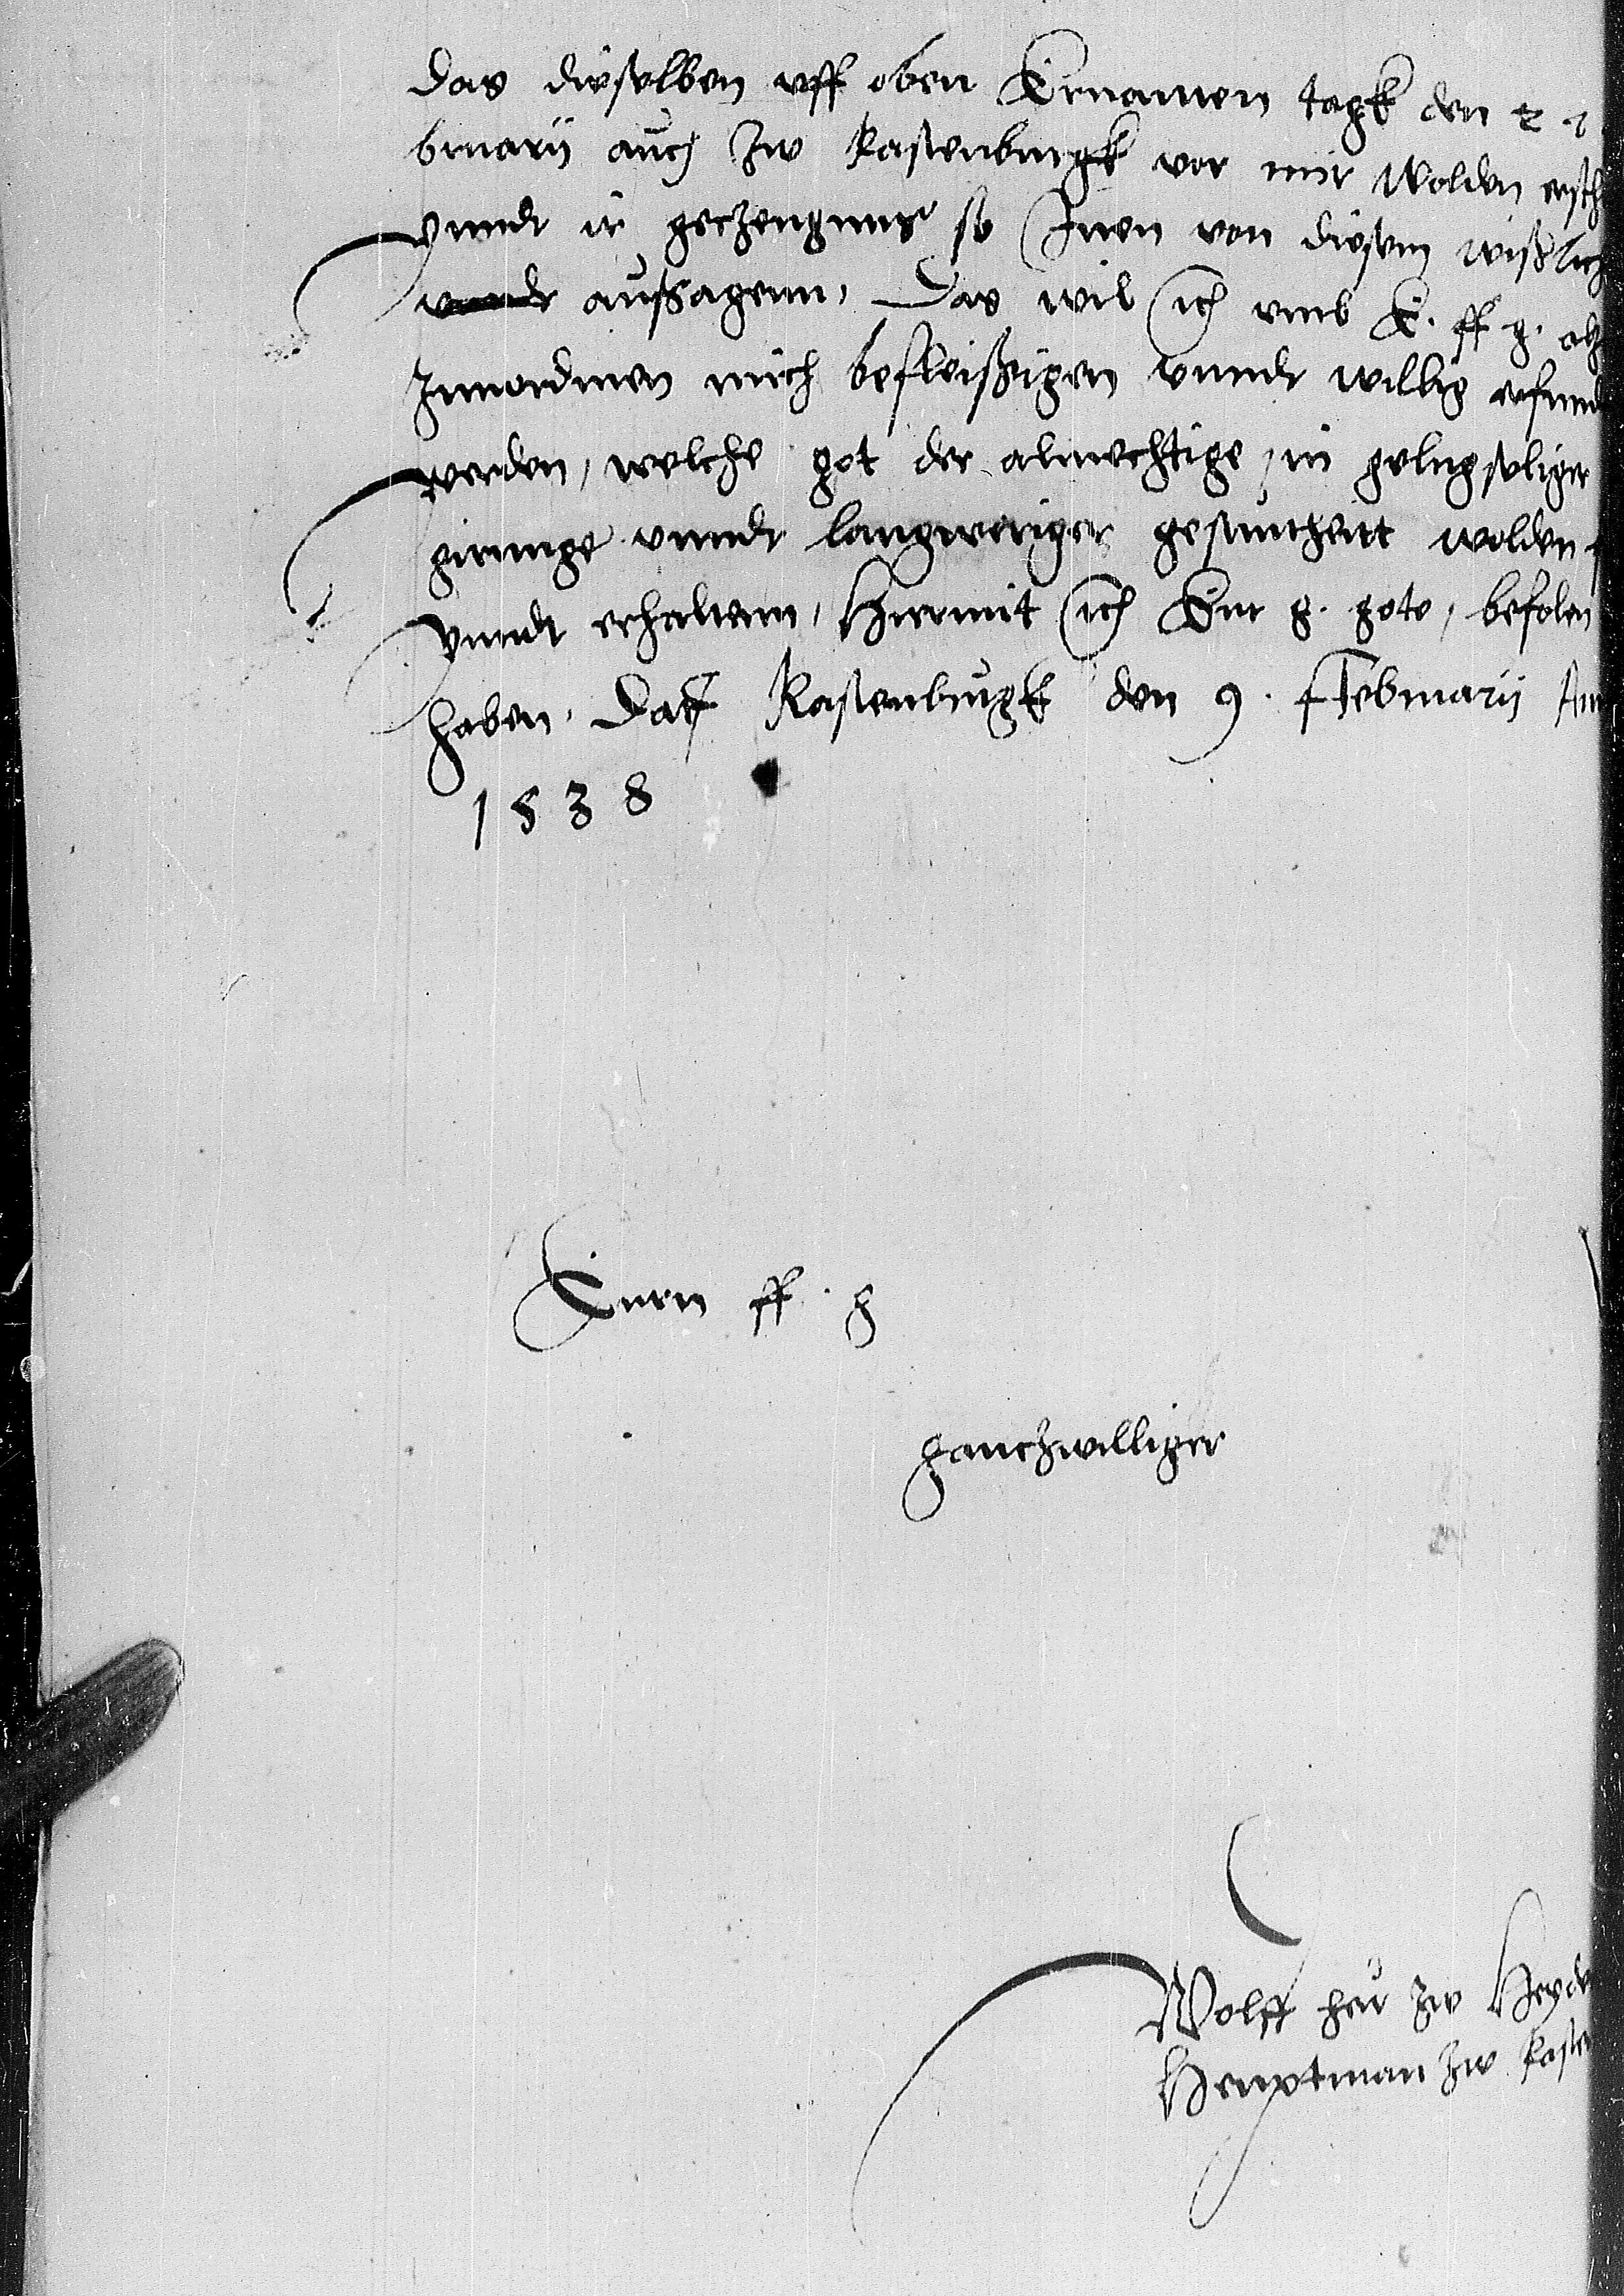 das dieselben vff oben Ernanten tagk den 22
bruarii auch zw Rastenburgk vor mir wolden ersch
vnnd ir geczeugnus so Inen von diesem wißlich
aussagenn, Das wil ich vmb E. ff. g.
zuuordinen mich befleissigen vnnd willig erfund
werden, welche got der almechtige in gelugseliger
girunge vnnd langweriger gesuntheitt wolden
vnnd erhaltenn, Hiermit ich Eur g. gote, befolen
haben, Dat Rastenburgk den 9. Februarii Ann
1538
Eurn ff. g
ganczwilliger
Wolff her zw Heyde
Heuptman zw Raste